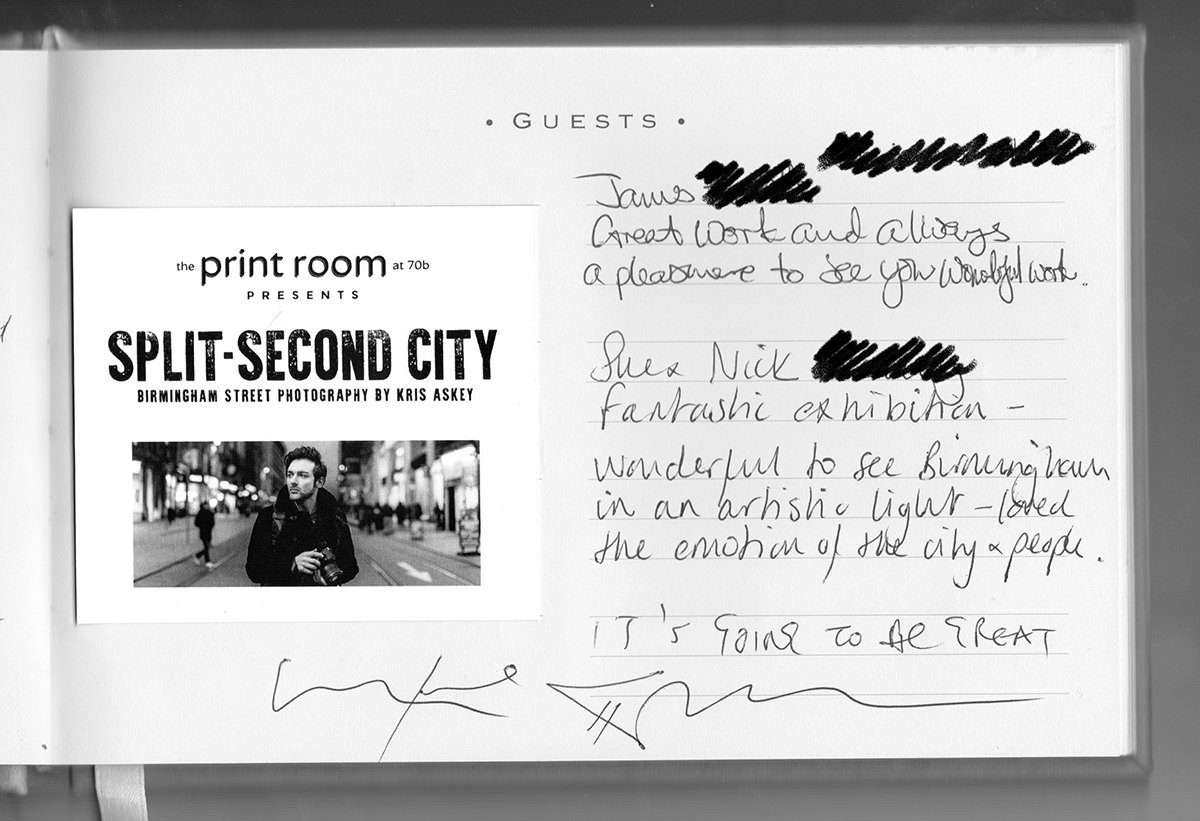 • GUESTS •
the print room at 70b
PRESENTS
SPLIT-SECOND CITY
BIRMINGHAM STREET PHOTOGRAPHY BY KRIS ASKEY
James
Great Work and always
a pleasure to see your wonderful work.
Nick
fantastic exhibition –
wonderful to see Birmingham
in an artistic light – loved
the emotion of the city & people.
IT'S GOING TO BE GREAT